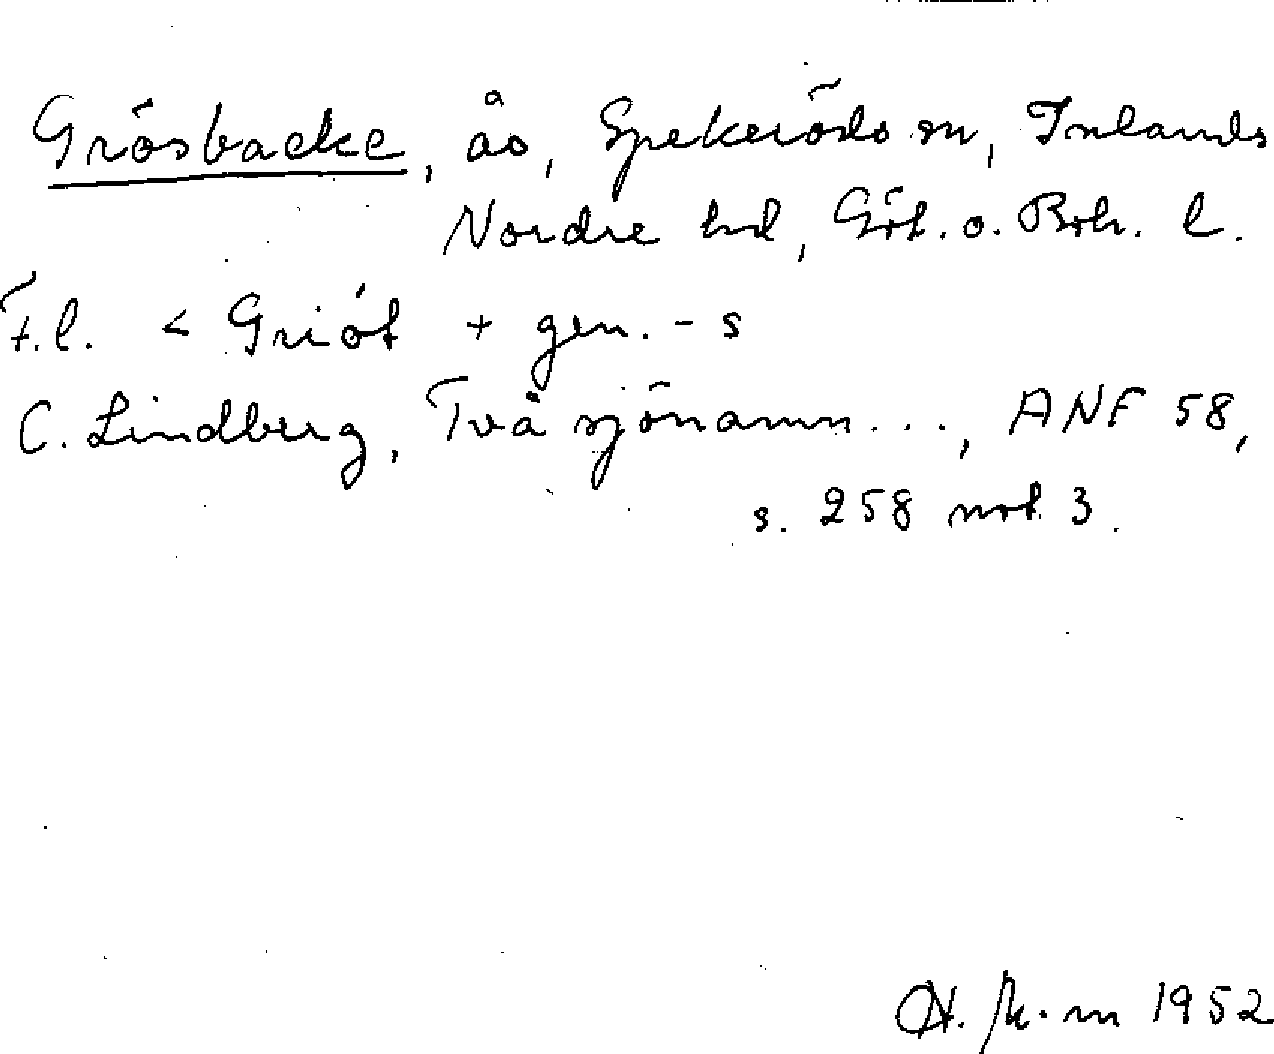 Grösbacke, ås, Spekeröds sn, Inlands
Nordre hd, Göt. o. Boh. l.
F.l. < Griót + gen. -s
C. Lindberg, Två sjönamn..., ANF 58,
s. 258 not 3.
1952